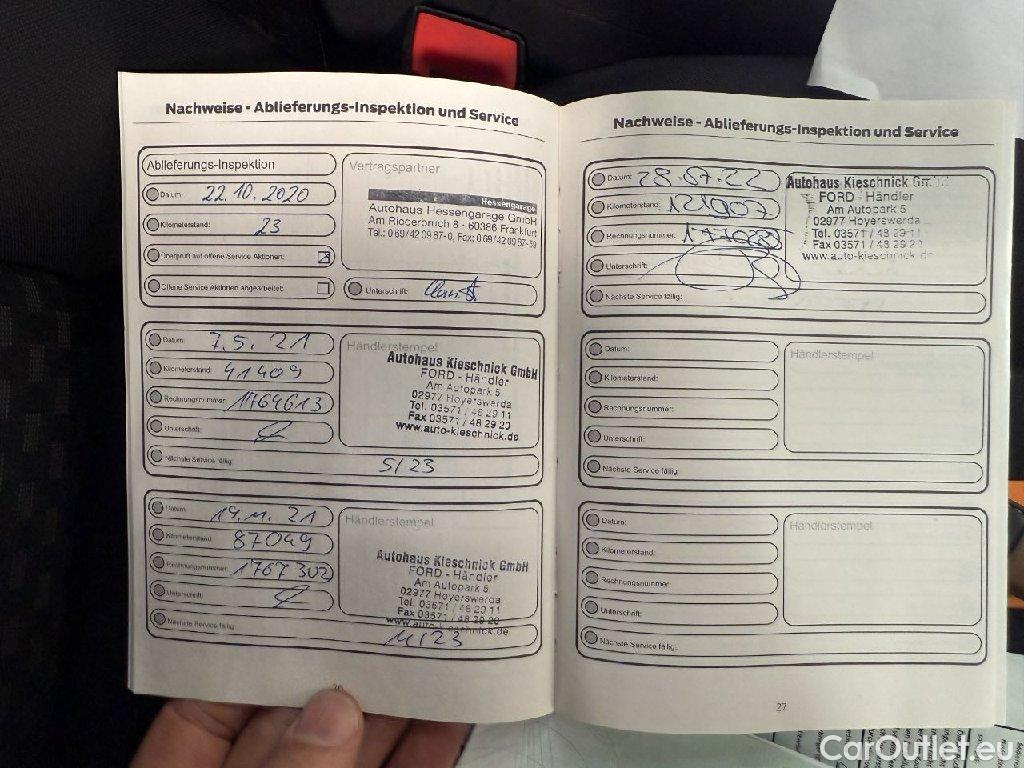 Nachweise - Ablieferungs-Inspektion und Service
Ablieferungs-Inspektion
Datum: 22.10.2020
Kilometerstand: 23
Überprüft auf offene Service Aktionen:
Offene Service Aktionen abgearbeitet:
Vertragspartner
Hessengarage
Autohaus Hessengarage GmbH
Am Riederbruch 8 - 60386 Frankfurt
Tel.: 0 69/42 09 87-0, Fax: 0 69/42 09 87-
Unterschrift:
Datum: 7.5.21
Kilometerstand: 41409
Rechnungsnummer: 1764613
Unterschrift:
Nächste Service fällig: 5/23
Händlerstempel
Autohaus Kieschnick GmbH
FORD - Händler
Am Autopark 5
02977 Hoyerswerda
Tel. 03571 / 48 29 11
Fax 03571 / 48 29 20
www.auto-kieschnick.de
Datum: 19.11.21
Kilometerstand: 87049
Rechnungsnummer: 1767302
Unterschrift:
Nächste Service fällig: 11/23
Händlerstempel
Autohaus Kieschnick GmbH
FORD - Händler
Am Autopark 5
02977 Hoyerswerda
Tel. 03571 / 48 29 11
Fax 03571 / 48 29 20
www.auto-kieschnick.de
26
Nachweise - Ablieferungs-Inspektion und Service
Datum: 28.07.22
Kilometerstand: 121907
Rechnungsnummer:
Unterschrift:
Nächste Service fällig:
Autohaus Kieschnick GmbH
FORD - Händler
Am Autopark 5
02977 Hoyerswerda
Tel. 03571 / 48 29 11
Fax 03571 / 48 29 2
www.auto-kieschnick.de
Datum:
Kilometerstand:
Rechnungsnummer:
Unterschrift:
Nächste Service fällig:
Händlerstempel
Datum:
Kilometerstand:
Rechnungsnummer:
Unterschrift:
Nächste Service fällig:
Händlerstempel
27
CarOutlet.eu